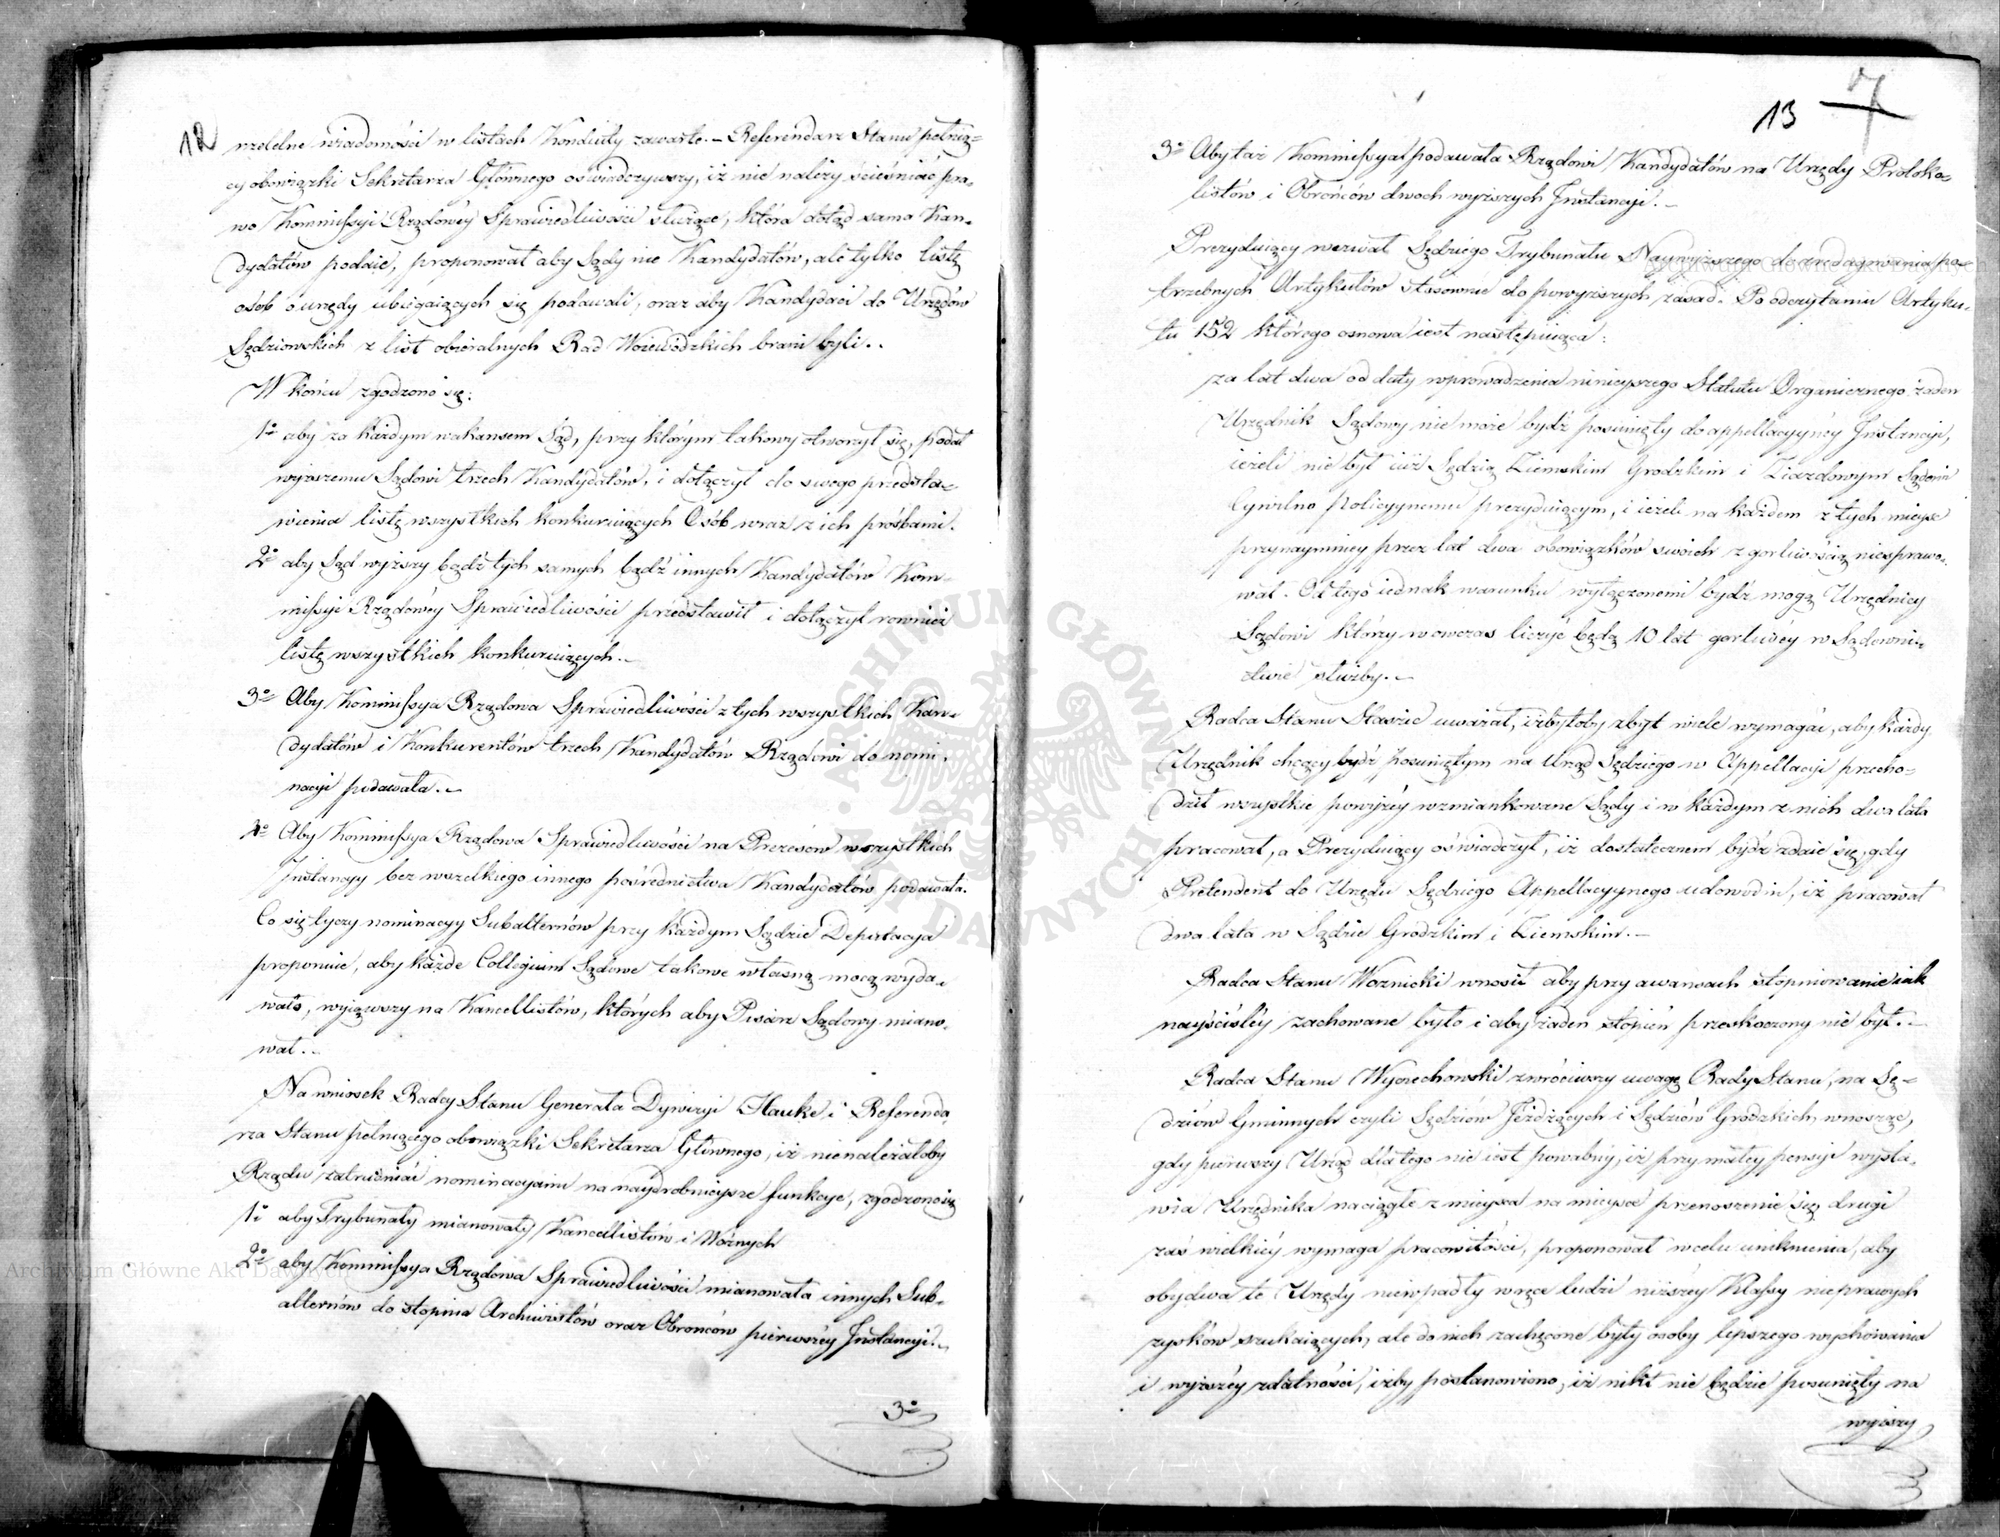 12
rzetelne wiadomości w listach Konduity zawarte. – Referendarz Stanu pełnią-
cy obowiązki Sekretarza Głównego oświadczywszy, iż nie należy ścieśniać pra-
wo Kommissyi Rządowey Sprawiedliwości służące, która dotąd sama Kan-
dydatów podaie, proponował aby Sądy nie Kandydatów, ale tylko listę
osób o urzędy ubiegaiących się podawali, oraz aby Kandydaci do Urzędów
Sędziowskich z list obieralnych Rad Woiewódzkich brani byli. .
W końcu zgodzono się:
1o aby za każdym wakansem Sąd, przy którym takowy otworzył się, podał
wyższemu Sądowi trzech Kandydatów, i dołączył do swego przedsta-
wienia listę wszystkich konkuruiących Osób wraz z ich prośbami.
2o aby Sąd wyższy bądź tych samych bądź innych Kandydatów Kom-
missyi Rządowey Sprawiedliwości przedstawił i dołączył rownież
listę wszystkich konkuruiących. –
3o Aby Kommissya Rządowa Sprawiedliwości z tych wszystkich Kan-
dydatów i Konkurentów trzech Kandydatów Rządowi do nomi-
nacyi podawała. –
4o Aby Kommissya Rządowa Sprawiedliwości na Prezesów wszystkich
Instancyy bez wszelkiego innego pośrednictwa Kandydatów podawała.
Co się tyczy nominacyy Subalternów przy każdym Sądzie Deputacya
proponuie, aby każde Collegium Sądowe takowe własną mocą wyda-
wało, wyiąwszy na Kancellistów, których aby Pisarz Sądowy miano-
wał. –
Na wniosek Radcy Stanu Generała Dywizyi Hauke i Referenda
rza Stanu pełniącego obowiązki Sekretarza Głównego, iż nienależałoby
Rządu zatrudniać nominacyami na naydrobnieysze funkcye, zgodzono się
1o aby Trybunały mianowały Kancellistów i Woźnych
2o aby Kommissya Rządowa Sprawiedliwości mianowała innych Sub-
alternów do stopnia Archiwistów oraz Obrońców pierwszey Instancyi. –
3o
13
7
3o Aby taż Kommissya podawała Rządowi Kandydatów na Urzędy Protoko-
listów i Obrońców dwoch wyższych Instancyi. –
Prezyduiący wezwał Sędziego Trybunału Naywyższego do zredagowania po-
trzebnych Artykułów stosownie do powyższych zasad. Po odczytaniu Artyku-
łu 152 którego osnowa iest następuiąca:
za lat dwa od daty wprowadzenia ninieyszego Statutu Organicznego żaden
Urzędnik Sądowy nie może bydź posunięty do appellacyyney Instancyi,
ieżeli nie był iuż Sędzią Ziemskim Grodzkim i Ziazdowym Sądowi
Cywilno policyynemu prezyduiącym, i ieżeli na każdem z tych mieysc
przynaymniey przez lat dwa obowiązków swoich z gorliwością niesprawo-
wał. Od tego iednak warunku wyłączonemi bydź mogą Urzędnicy
Sądowi którzy wowczas liczyć będą 10 lat gorliwéy w Sądowni-
ctwie służby. –
Radca Stanu Staszic uważał, iż byłoby zbyt wiele wymagać, aby każdy
Urzędnik chcący bydź posuniętym na Urząd Sędziego w Appellacyi przecho-
dził wszystkie powyżéy wzmiankowane Sądy i w każdym z nich dwa lata
pracował, a Prezyduiący oświadczył, iż dostatecznem bydź zdaie się, gdy
Pretendent do Urzędu Sędziego Appellacyynego udowodni, iż pracował
dwa lata w Sądzie Grodzkim i Ziemskim. –
Radca Stanu Woznicki wnosił aby przy awansach stopniowanie iak
nayściśléy zachowane było i aby żaden stopień przeskoczony nie był. –
Radca Stanu Wyczechowski zwróciwszy uwagę Rady Stanu, na Sę-
dziów Gminnych czyli Sędziów Jeżdżących i Sędziów Grodzkich, wnosząc,
gdy pierwszy Urząd dlatego nie iest powabny, iż przy małey pensyi wysta-
wia Urzędnika na ciągłe z mieysca na mieysce przenoszenie się, drugi
zaś wielkiéy wymaga pracowitości, proponował w celu uniknienia, aby
obydwa te Urzędy niewpadły w ręce ludzi niższéy Klassy nieprawych
zysków szukaiących, ale do nich zachęcone były osoby lepszego wychowania
i wyższéy zdatności, iżby postanowiono, iż nikt nie będzie posunięty na
wyższy